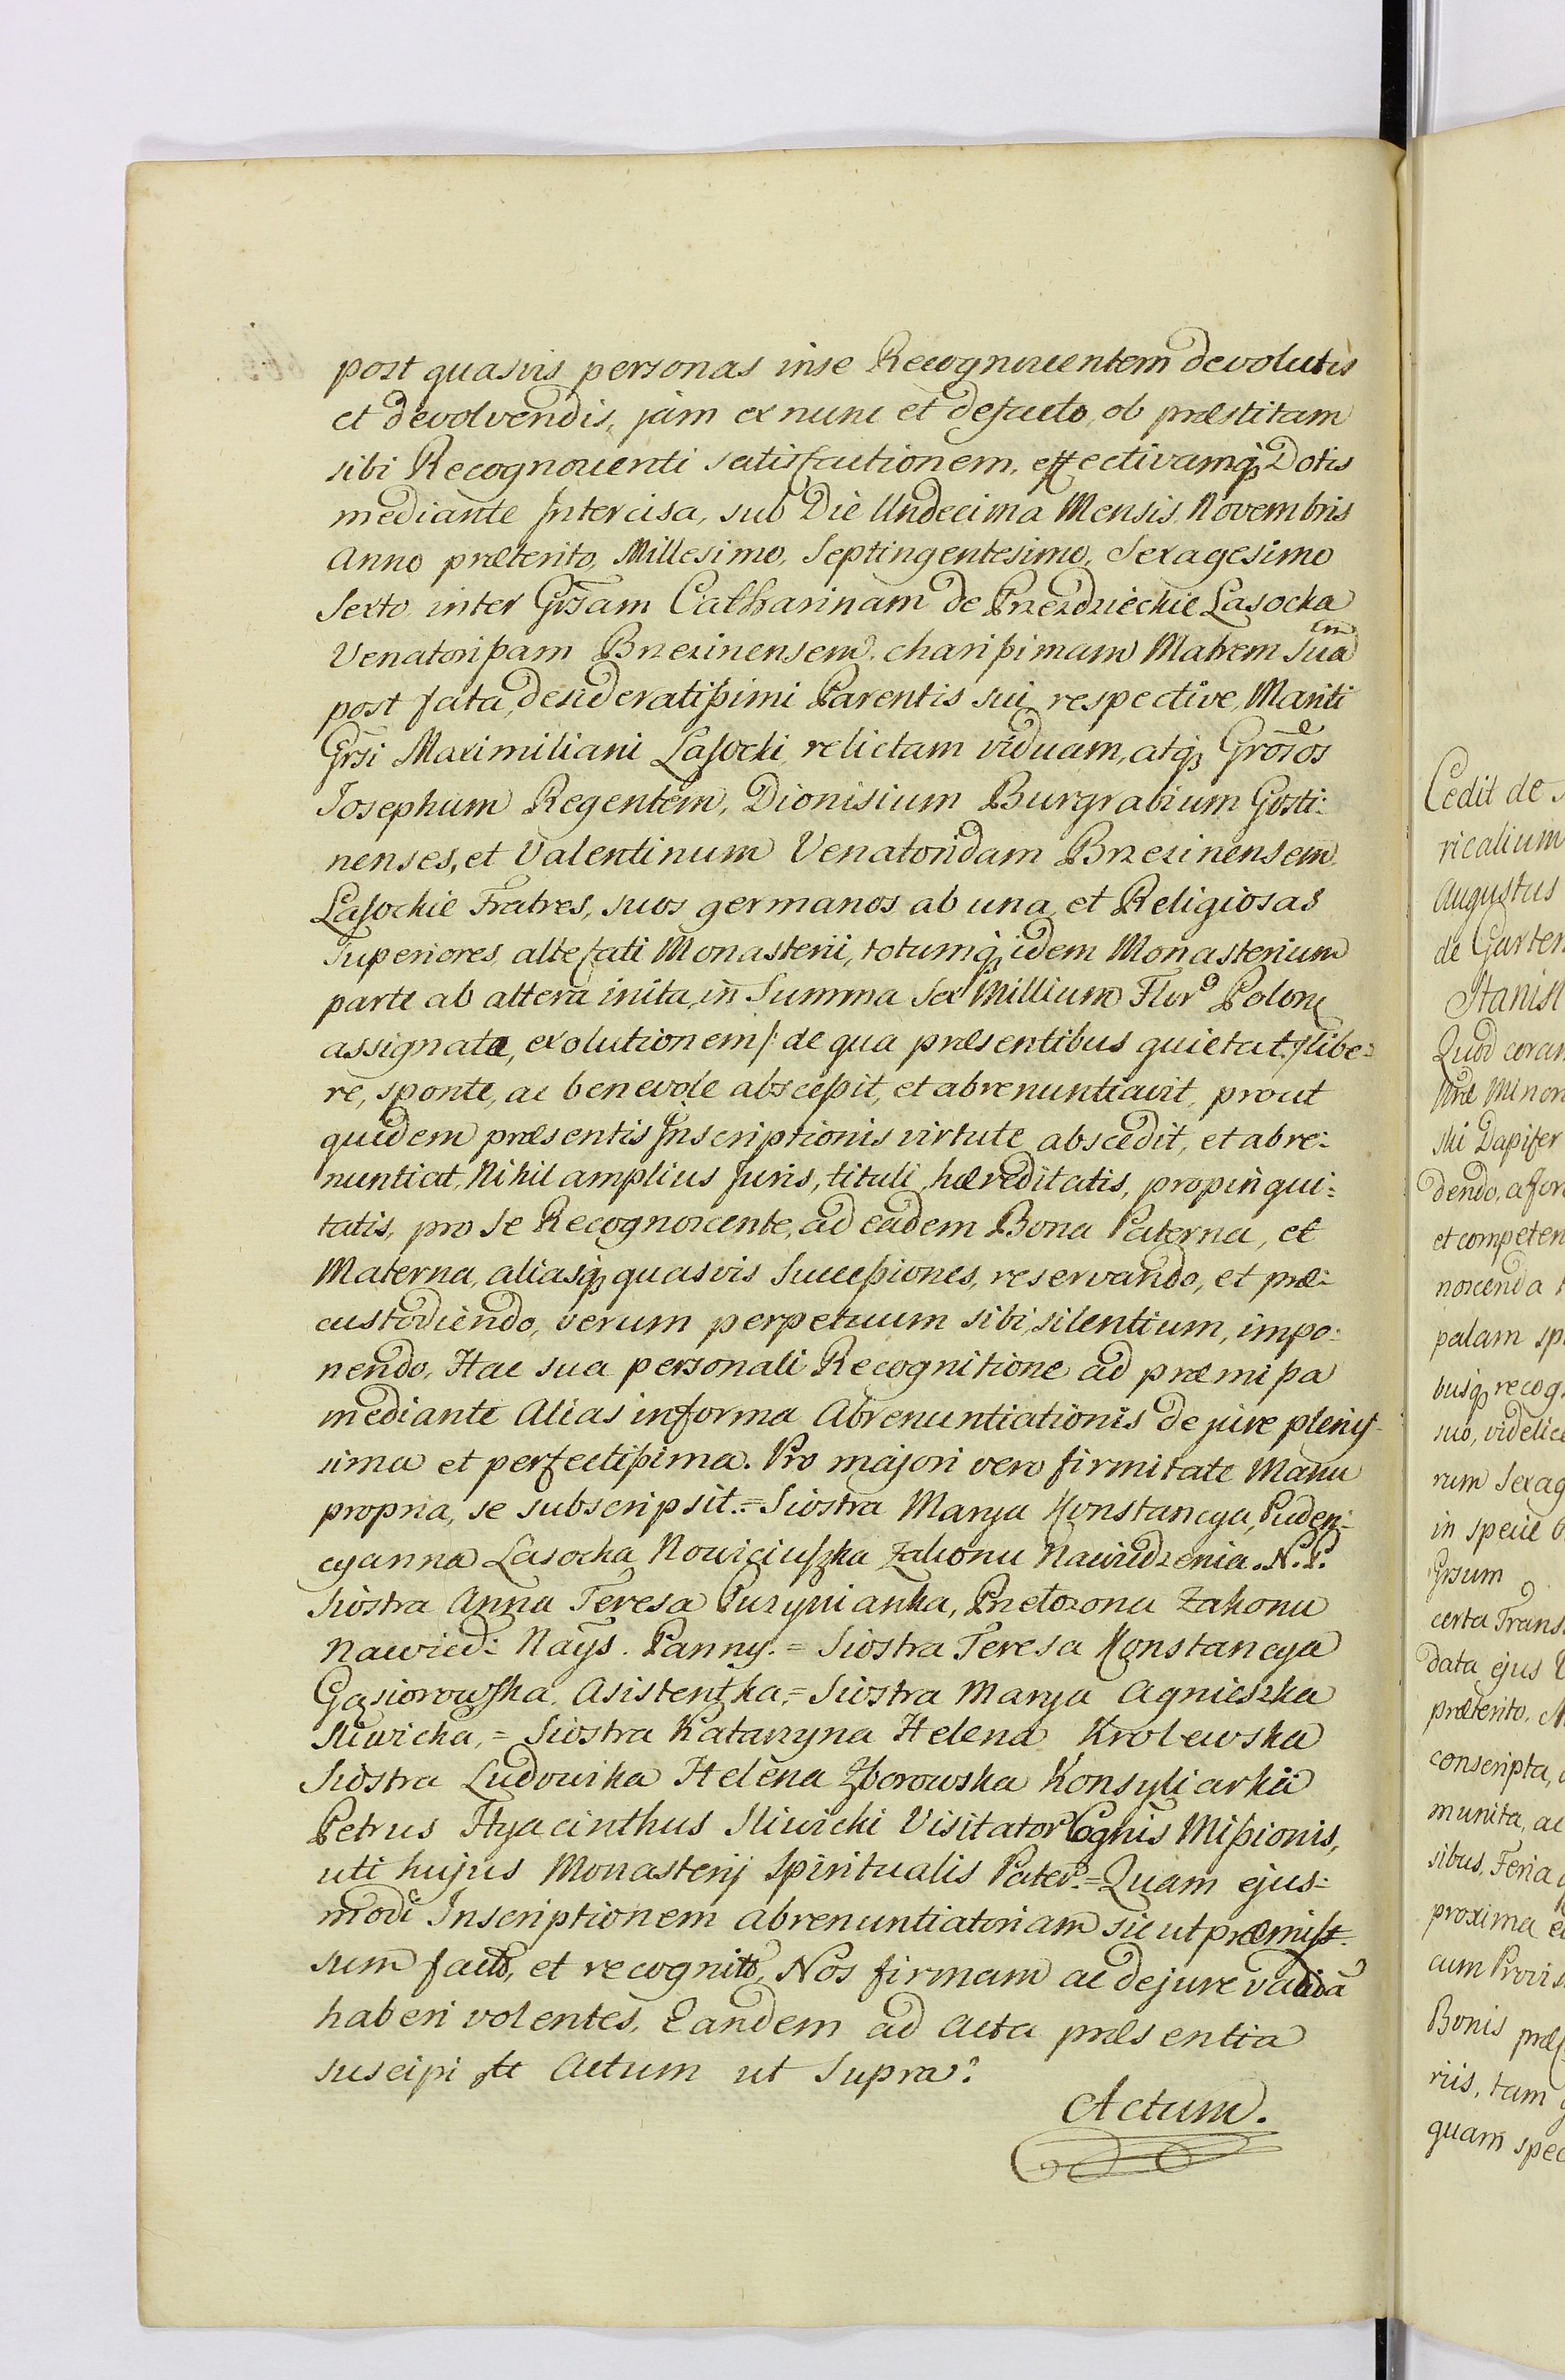 post quasvis personas inse Recognoscentem devolutis
et devolvendis, jam ex nunc et defacto, ob præstitam
sibi Recognoscenti satisfactionem, effectivamq; Dotis
mediante Intercisa, sub Die Undecima Mensis Novembris
Anno præterito, Millesimo, Septingentesimo, Sexagesimo
Sexto inter Grsam Catharinam de Przezdzieckie Lasocka
Venatorißam Brzezinensem, charißimam Matrem Suam
post fata, desideratißimi Parentis sui respective, Mariti
Grsi Maximiliani Lasocki, relictam viduam, atq; Grosos
Josephum Regentem, Dionisium Burgrabium Gosti:
nenses, et Valentinum Venatoridam Brzezinensem
Lasockie Fratres, suos germanos ab una, et Religiosas
Superiores, altefati Monasterii, totumq; idem Monasterium
parte ab altera inita, in Summa Sex Millium Flor Polon
assignata, exolutionem /: de qua præsentibus quietat :/ libe:
re, sponte, ac benevole absceßit, et abrenuntiavit, prout
quidem præsentis Inscriptionis virtute abscedit, et abre:
nuntiat, Nihil amplius Juris, tituli, hæreditatis, propinqui:
tatis, pro Se Recognoscente, ad eadem Bona Paterna, et
Materna, aliasq; quasvis Succeßiones, reservando, et præ:
custodiendo, verum perpetuum sibi, silentium, impo:
nendo, Hac sua personali Recognitione ad præmißa
mediante Alias informa Abrenuntiationis de jure plenis
sima et perfectißima. Pro majori vero firmitate Manu
propria, se subscripsit. = Siostra Marya Konstancya, Puden:
cyanna Lasocka Nowiciuszka Zakonu Nawiedzenia. N. P.
Siostra Anna Teresa Puzynianka, Przełozona Zakonu
Nawied: Nays. Panny. = Siostra Teresa Konstancya
Gąsiorowska, Asistentka, = Siostra Marya Agnieszka
Sliwicka, = Siostra Katarzyna Helena Krolewska
Siostra Ludowika Helena Zborowska Konsyliarka
Petrus Hyacinthus Sliwicki Visitator Cognis Mißionis,
uti hujus Monasterij Spiritualis Pater. = Quam ejus:
modi Inscriptionem abrenuntiatoriam sicut præmis
sum facto, et recognito, Nos firmam ac dejure validã
haberi volentes, Eandem ad Acta præsentia
suscipi Actum ut Supra.
Actum.
Cedit de
ricalium
Augustus
de Garten
Stanisl
Quod coram
Minori
ski Dapifer
dendo, a for
et competen
noscenda
palam sp
busq; recog
suo, videlice
rum Sexag
in specie
Grsum
certa Trans
data ejus
præterito,
conscripta,
munita, ac
sibus, Feria
proxima
cum Provis
Bonis præ
riis, tam
quam spec